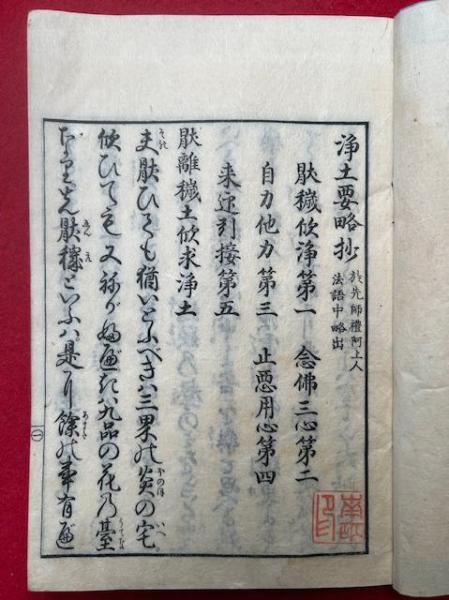 浄土要略抄 於先師禮阿上人
法語中略出
厭穢欣浄第一 念佛三心第二
自力他力第三 止悪用心第四
来迎引接第五
厭離穢土欣求浄土
夫厭ひても猶いとふべきハ三界の炎の宅
欣ひても又ねがふべきハ九品の花乃臺
厭穢といふハ是り餘の事有
一